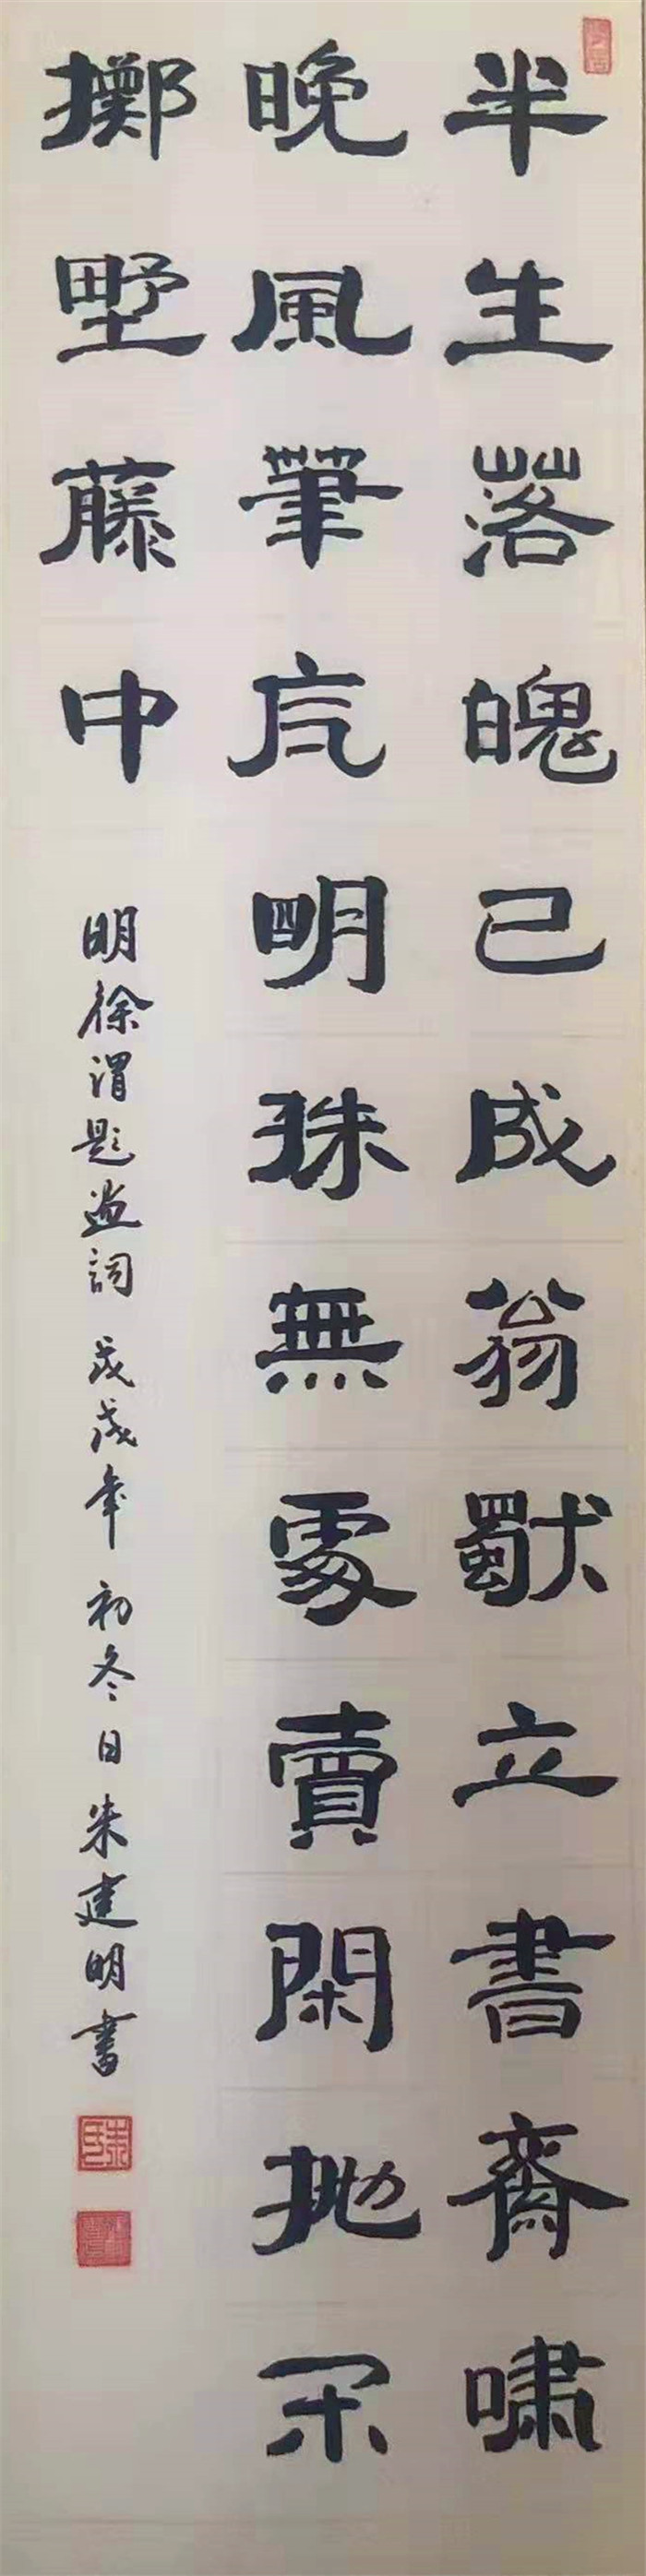 半生落魄已成翁獨立書齋嘯
晚風筆底明珠無處賣閑拋閑
擲野藤中
明徐渭題畫詞 戊戌年 初冬日 朱建明書